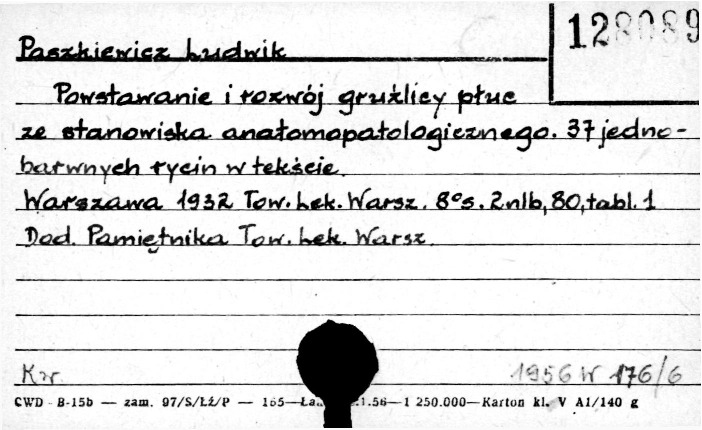 128089
Paszkiewicz Ludwik
Powstawanie i rozwój gruźlicy płuc
ze stanowiska anatomopatologicznego. 37 jedno-
barwnych rycin w tekście.
Warszawa 1932 Tow. Lek. Warsz. 8° s. 2 nlb, 80, tabl. 1
Dod. Pamiętnika Tow. Lek. Warsz.
Kw. 1956 W 176/6
CWD B-15b — zam. 97/S/Łż/P — 165— .1.56—1 250.000—Karton kl. V A1/140 g